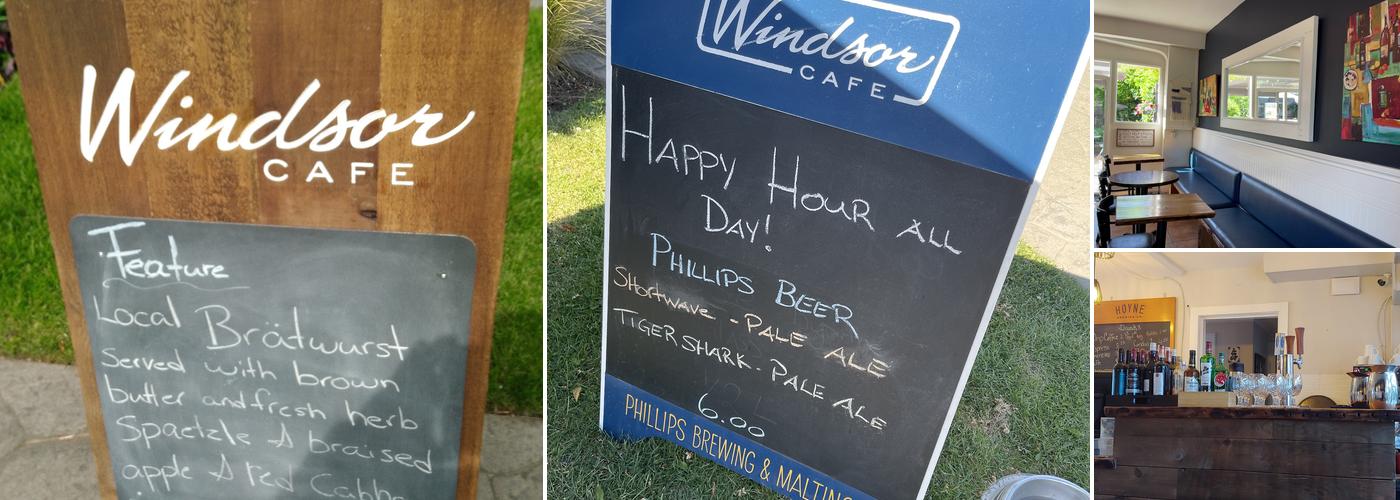 Windsor
CAFE
Feature
Local Brätwurst
Served with brown
butter and fresh herb
Spaetzle & braised
apple & red Cabba
Windsor
CAFE
HAPPY HOUR ALL
DAY!
PHILLIPS BEER
Shortwave - PALE ALE
TIGER SHARK - PALE ALE
6.00
PHILLIPS BREWING & MALTING
HOYNE